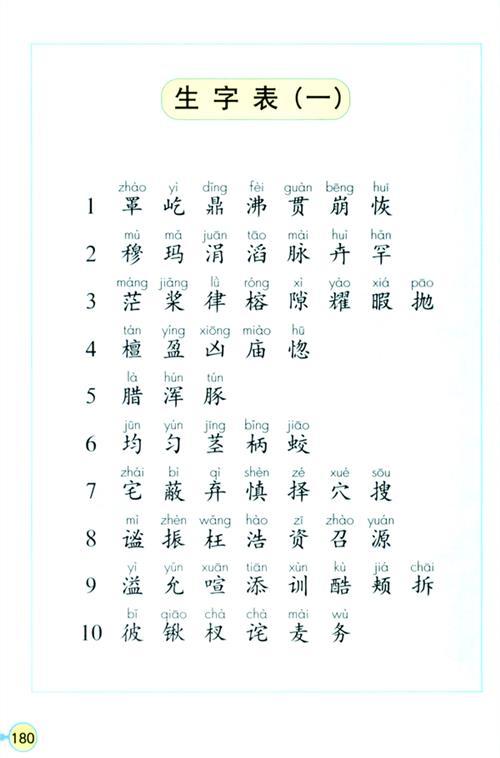 生字表（一）
zhào yì dǐng fèi guàn bēng huī
1 罩 屹 鼎 沸 贯 崩 恢
mù mǎ juān tāo mài huì hǎn
2 穆 玛 涓 滔 脉 卉 罕
máng jiǎng lǜ róng xì yào xiá pāo
3 茫 桨 律 榕 隙 耀 暇 抛
tán yíng xiōng miào hū
4 檀 盈 凶 庙 惚
là hún tún
5 腊 浑 豚
jūn yún jīng bǐng jiāo
6 均 匀 茎 柄 蛟
zhái bì qì shèn zé xué sōu
7 宅 蔽 弃 慎 择 穴 搜
mì zhèn wǎng hào zī zhào yuán
8 谧 振 枉 浩 资 召 源
yì yǔn xuān tiān xùn kù jiá chāi
9 溢 允 喧 添 训 酷 颊 拆
bǐ qiāo chà chà mài wù
10 彼 锹 杈 诧 麦 务
180